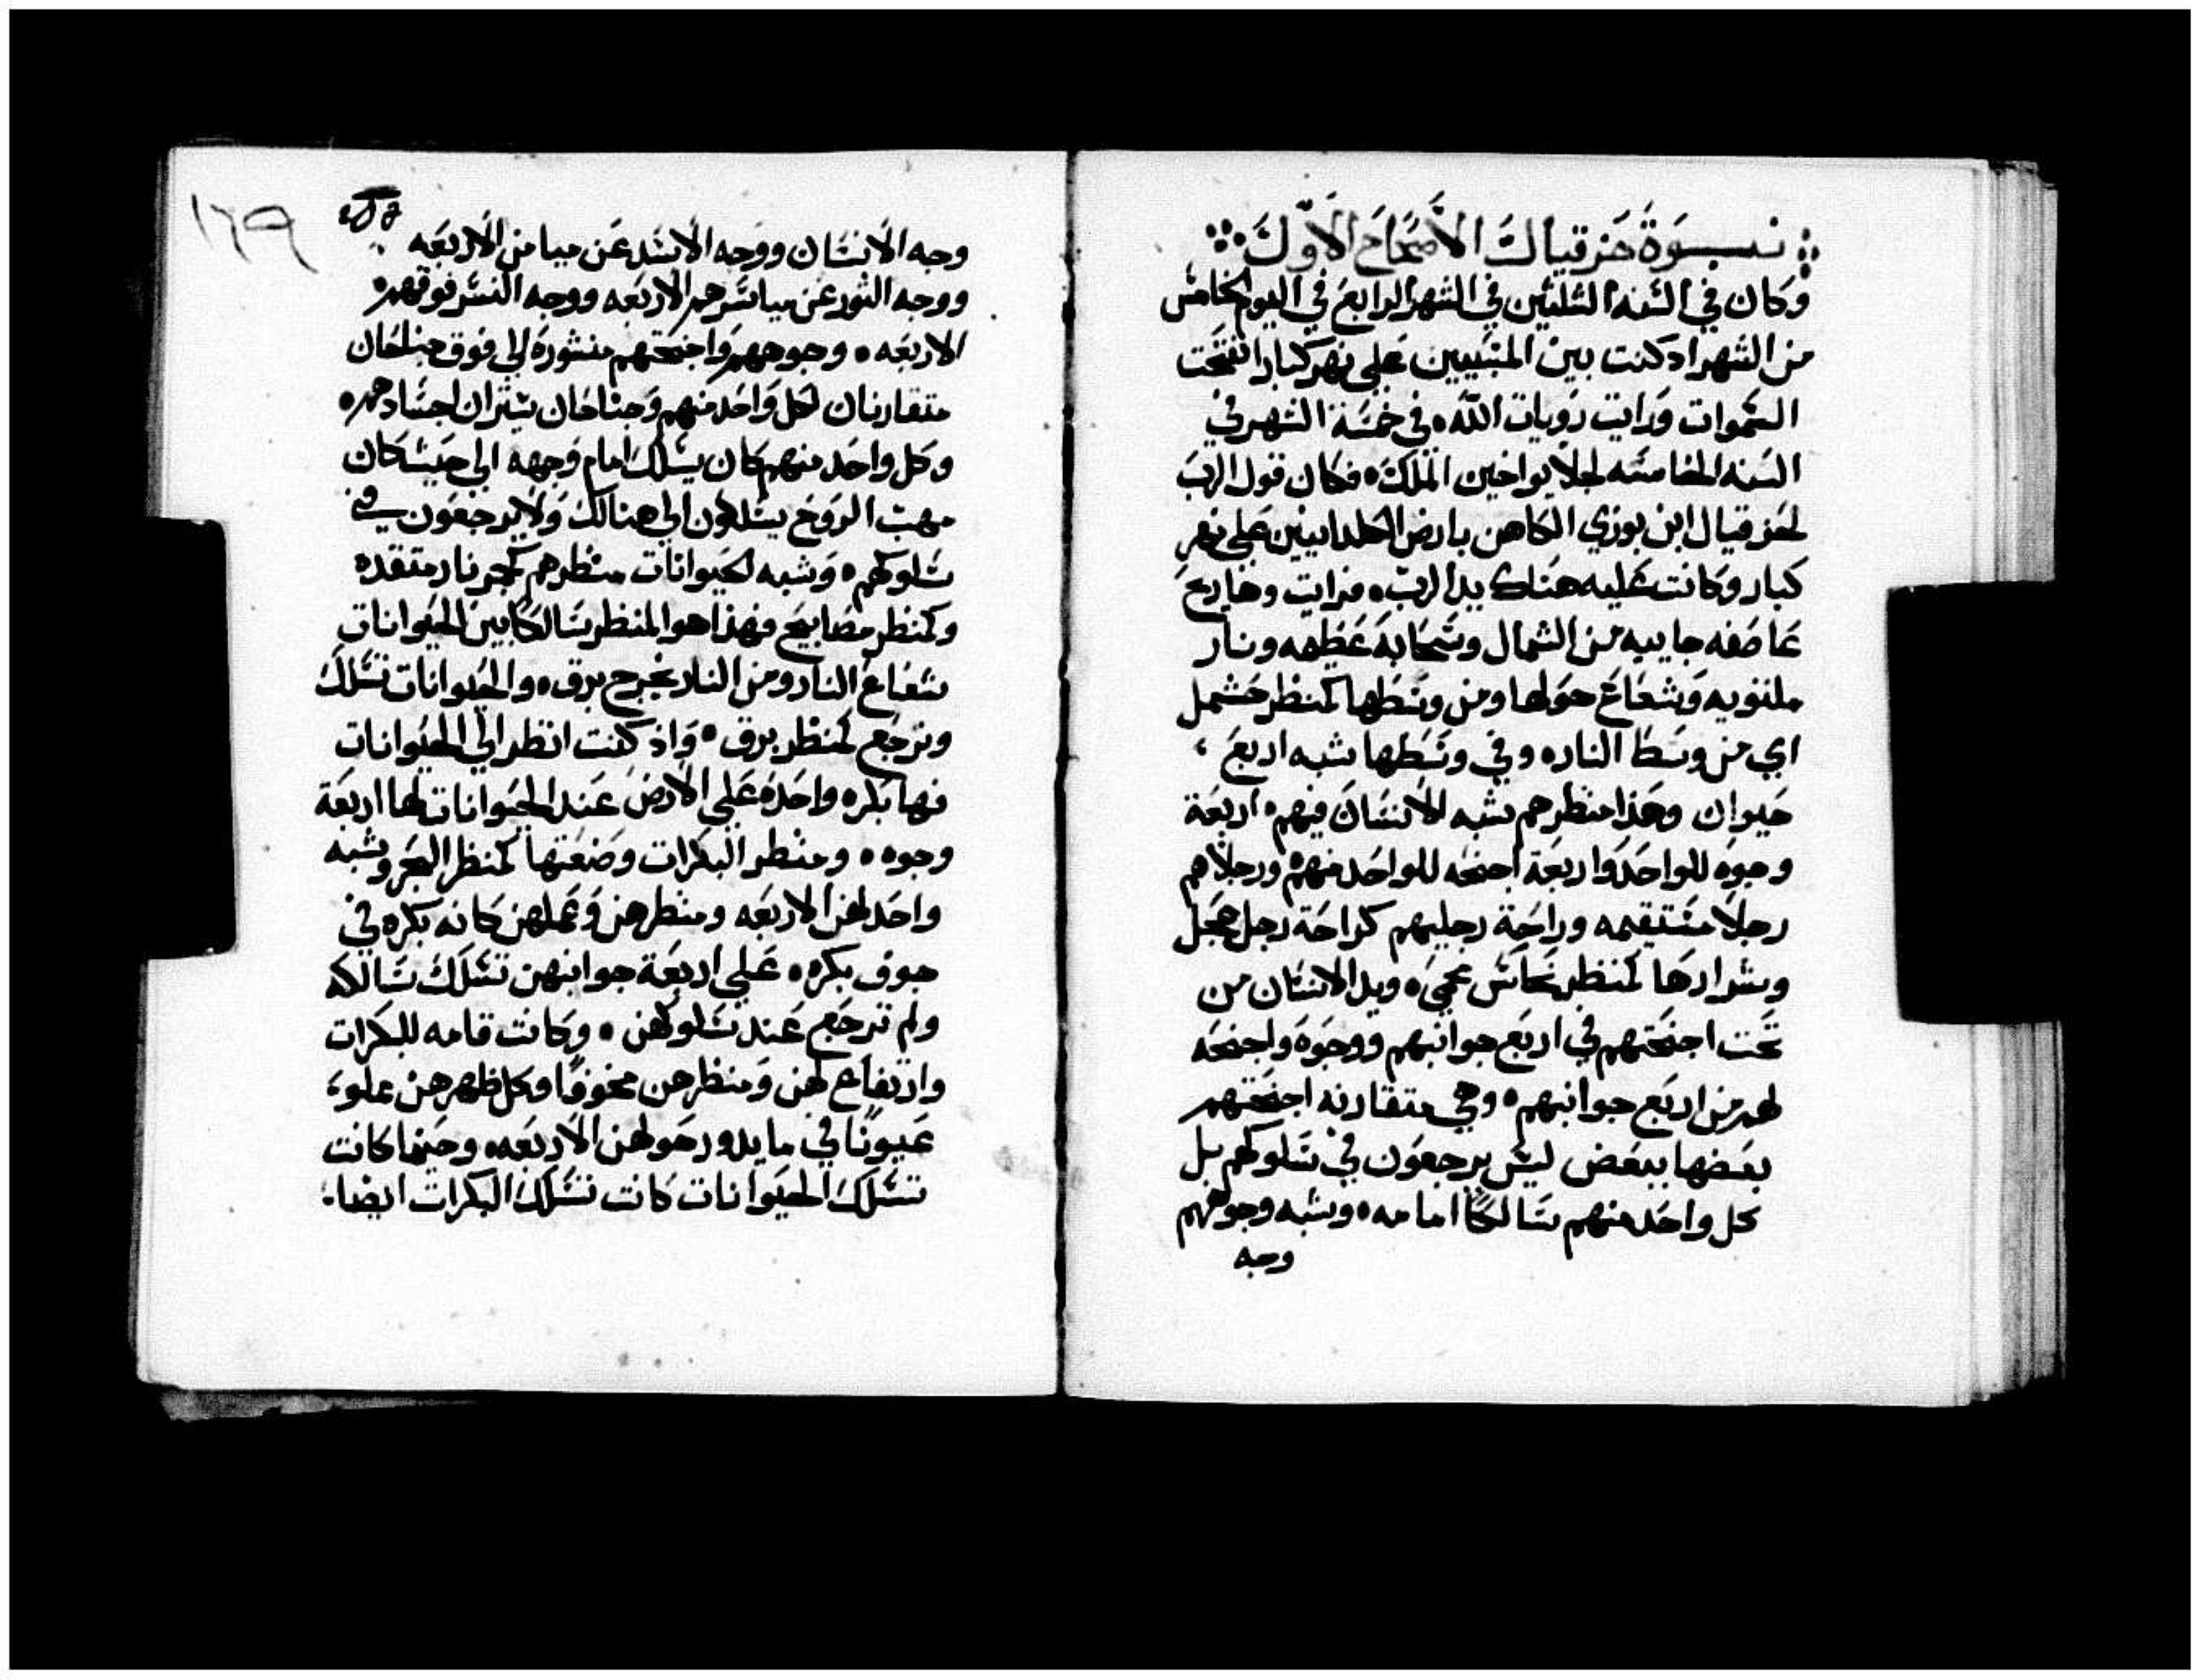 نبوة حزقيال الاصحاح الاول
وكان في السنه الثلثين في الشهر الرابع في اليوم الخامس
من الشهر اد كنت بين المسبيين علي نهر كبار انفتحت
السموات ورايت رويات الله في خمسة الشهر في
السنه الخامسه لجلا يواخين الملك فكان قول الرب
لحزقيال ابن بوزي الكاهن بارض الكلدانيين علي نهر
كبار وكانت عليه هناك يد الرب فرايت وها ريح
عاصفه جاييه من الشمال وسحابة عظيمه ونار
ملتويه وشعاع حولها ومن وسطها كمنظر حشمل
اي من وسط النار وفي وسطها شبه اربع
حيوان وهذا منظرهم شبه الانسان فيهم اربعة
وجوه للواحد واربعة اجنحه للواحد منهم ورجلاهم
رجلا مستقيمه وراحة رجليهم كراحة رجل عجل
وشرارها كمنظر نحاس محمي ويد الانسان من
تحت اجنحتهم في اربع جوانبهم ووجوه واجنحه
لهم من اربع جوانبهم وهي متقارنه اجنحتهم
بعضها ببعض ليس يرجعون في سلوكهم بل
كل واحد منهم سالكا امامه وشبه وجوههم
وجه
١٦٩
وجه الانسان ووجه الاسد عن ميامن الاربعه
ووجه الثور عن مياسرهم الاربعه ووجه النسر فوقهم
الاربعه وجوههم واجنحتهم منشورة الي فوق جناحان
متقارنان لكل واحد منهم وجناحان يستران اجسادهم
وكل واحد منهم كان يسلك امام وجهه الي حيث كان
مهب الروح يسلكون الي هنالك ولا يرجعون في
سلوكهم وشبه الحيوانات منظرهم كجمر نار متقده
وكمنظر مصابيح فهذا هو المنظر سالكا بين الحيوانات
شعاع النار ومن النار يخرج برق والحيوانات تسلك
وترجع كمنظر برق واذ كنت انظر الي الحيوانات
فها بكره واحده علي الارض عند الحيوانات لها اربعة
وجوه ومنظر البكرات وصنعتها كمنظر البحر وشبه
واحد لهن الاربعه ومنظرهن وعملهن كانه بكره في
جوف بكره علي اربعة جوانبهن تسلك سالكه
ولم ترجع عند سلوكهن وكانت قامه للبكرات
وارتفاع لهن ومنظرهن مخوفا وكل ظهرهن علو
عيونا في ما يدور حولهن الاربعه وحينما كانت
تسلك الحيوانات كانت تسلك البكرات ايضا